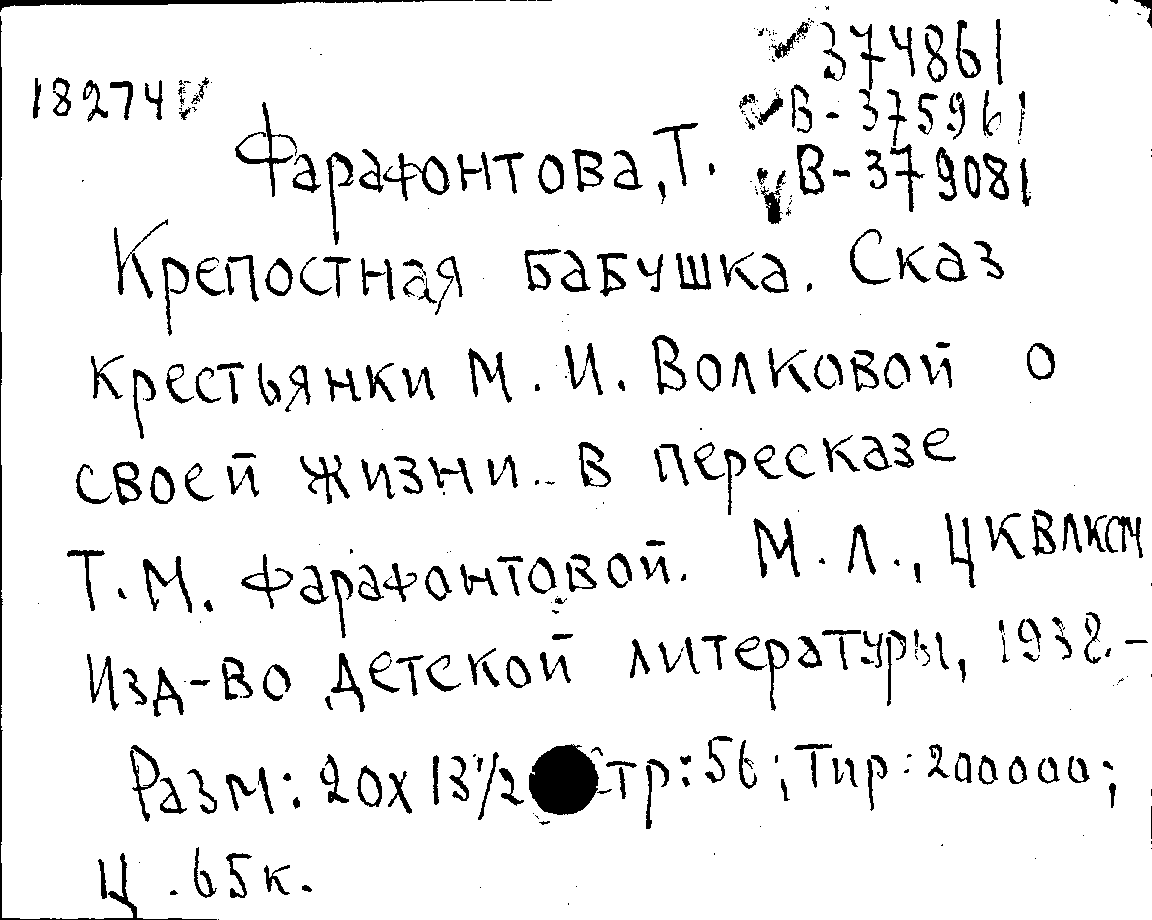 374861
18274
В-375961
Фарафонтова, Т.
В-379081
Крепостная бабушка. Сказ
крестьянки М. И. Волковой о
своей жизни. В пересказе
Т. М. Фарафонтовой. М. Л., ЦК ВЛКСМ
Изд-во детской литературы, 1938.-
Разм: 20х13 1/2 Стр: 56; Тир: 200000;
Ц. 65к.